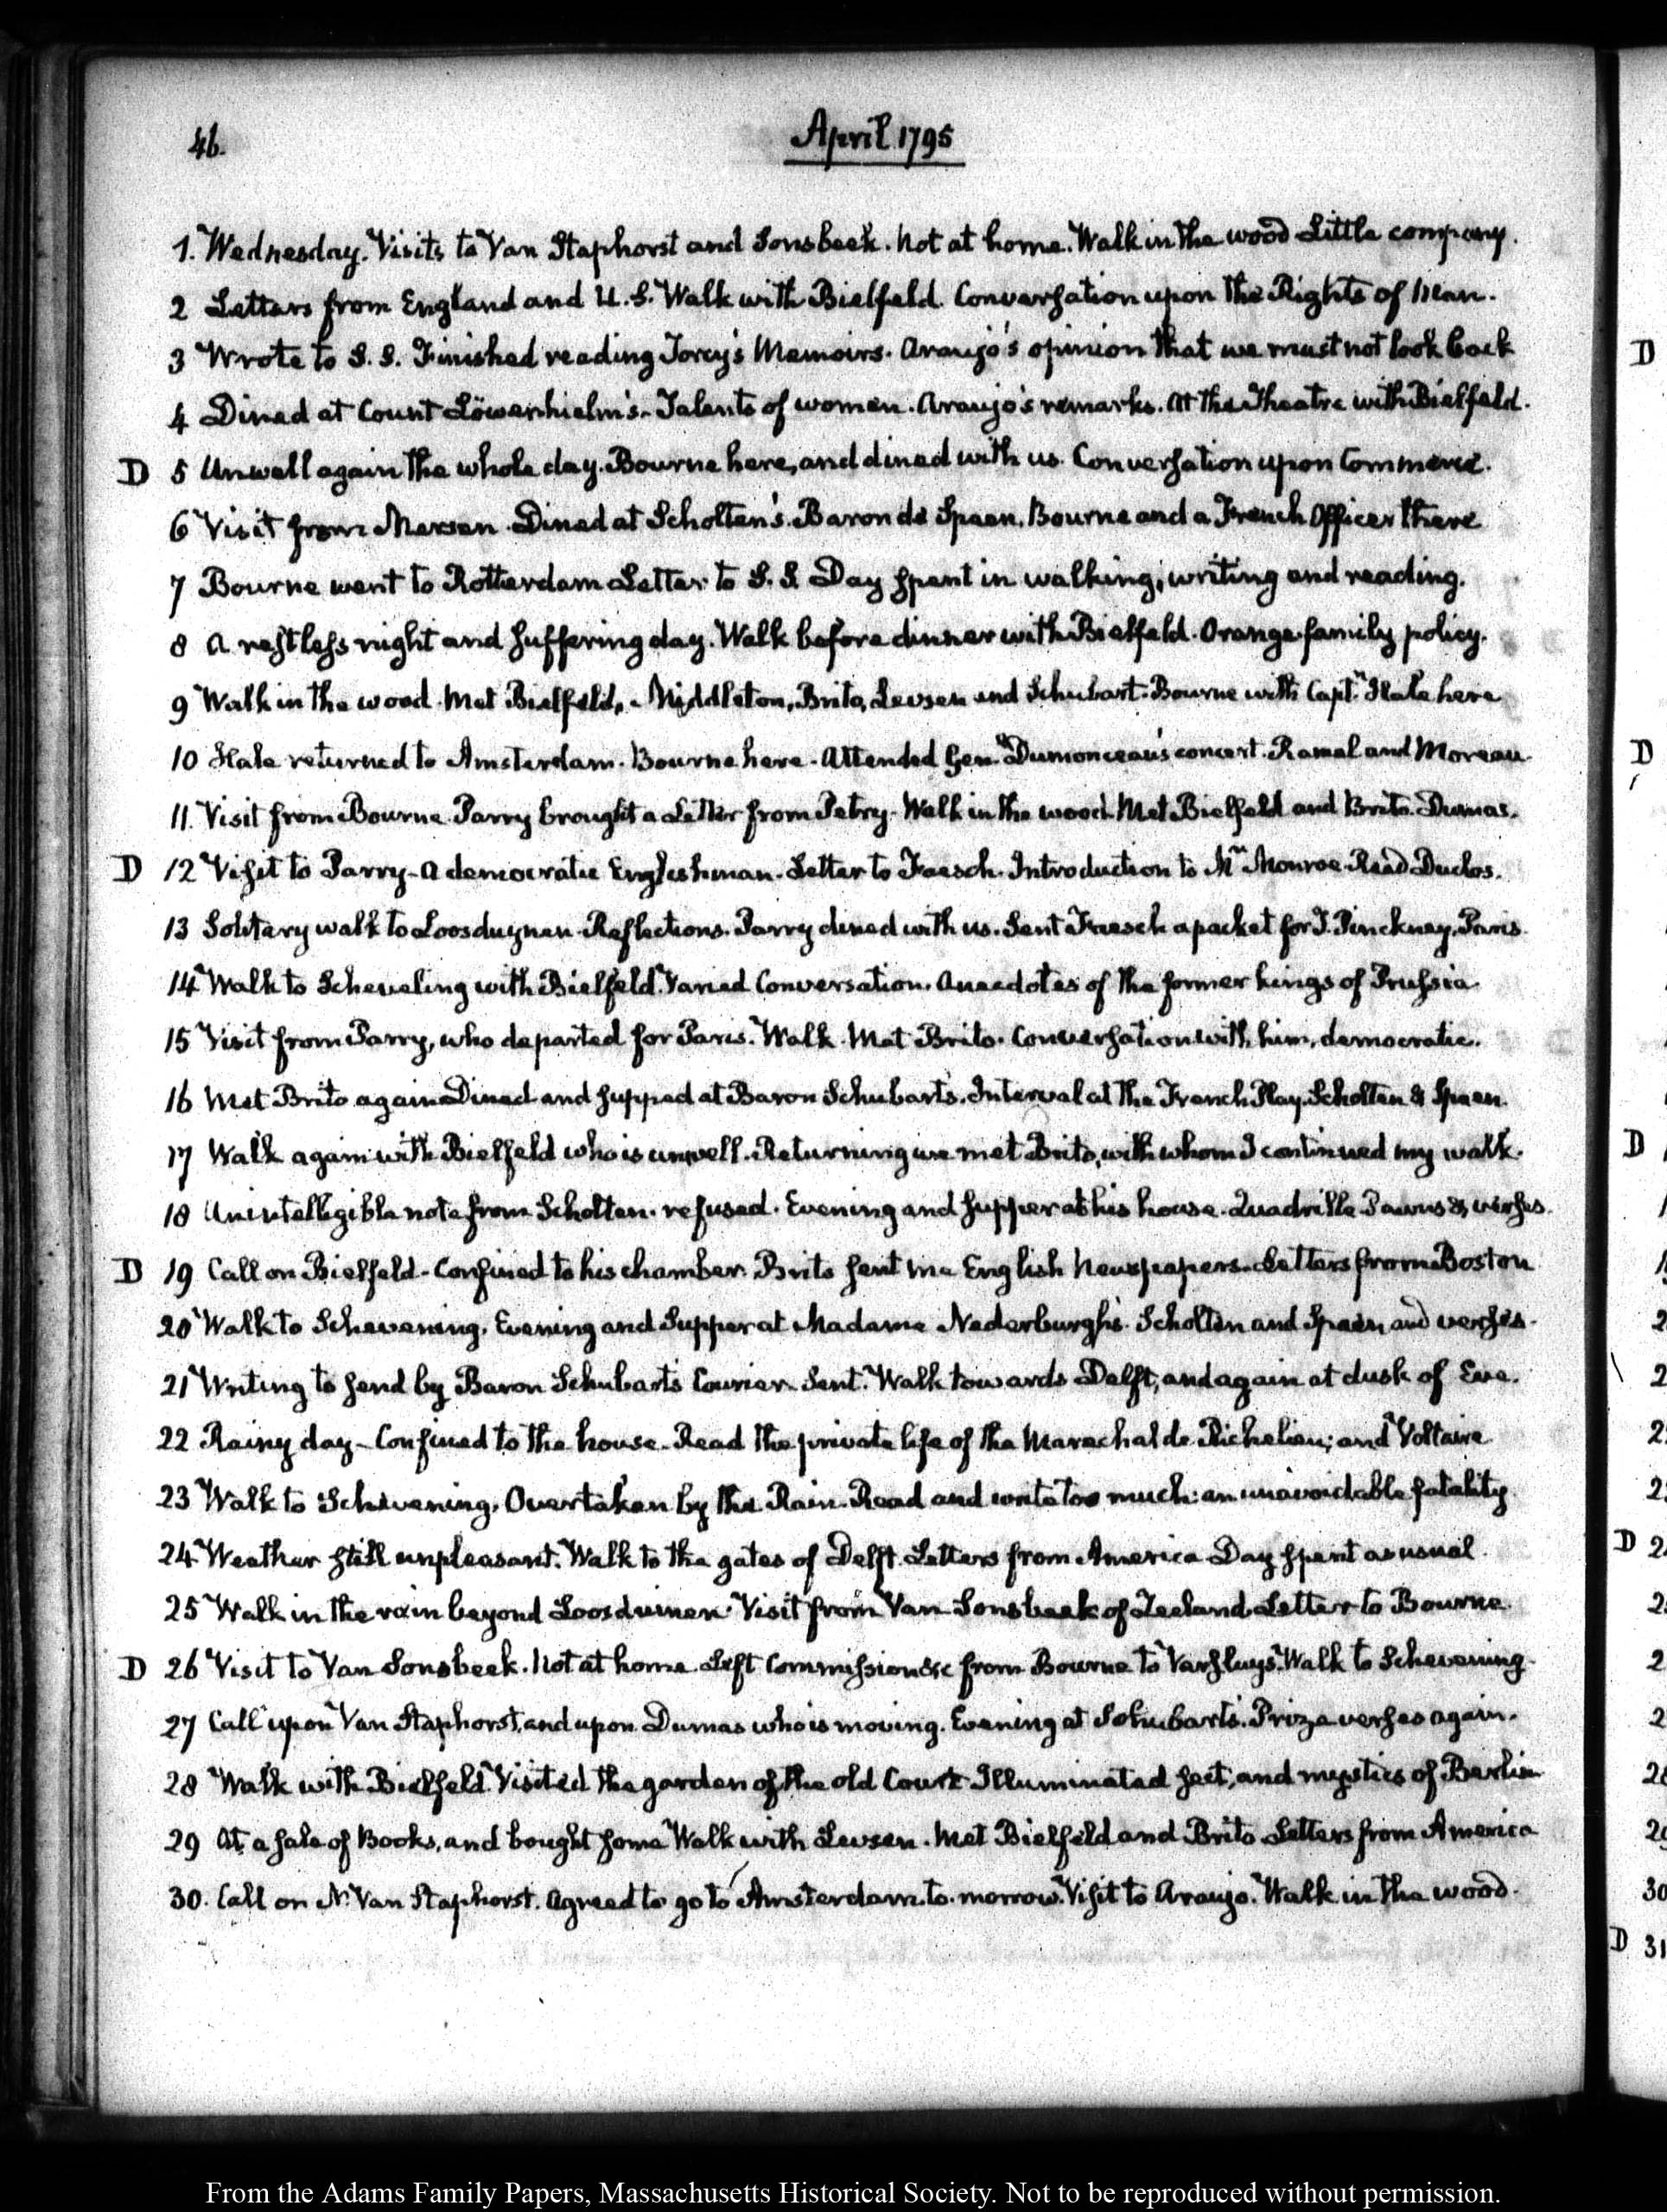 46.
April 1795
1. Wednesday. Visits to Van Staphorst and Sonsbeek. Not at home. Walk in the wood Little company.
2 Letters from England and U.S. Walk with Bielfeld. Conversation upon the Rights of Man.
3 Wrote to S. S. Finished reading Torcy's Memoirs. Araujo's opinion that we must not look back
4 Dined at Count Löwenhielm's. Talents of women. Araujo's remarks. At the Theatre with Bielfeld.
D 5 Unwell again the whole day. Bourne here, and dined with us. Conversation upon Commerce.
6 Visit from Mersen. Dined at Scholten's. Baron de Spaen, Bourne and a French Officer there
7 Bourne went to Rotterdam Letter to S. S. Day spent in walking, writing and reading.
8 A restless night and suffering day. Walk before dinner with Bielfeld. Orange family policy.
9 Walk in the wood. Met Bielfeld, Middleton, Brito, Levsen and Schubart. Bourne with Capt. Hale here
10 Hale returned to Amsterdam. Bourne here. Attended Genl. Dumonceau's concert. Ramel and Moreau.
11. Visit from Bourne. Parry brought a Letter from Petry. Walk in the wood. Met Bielfeld and Brito. Dumas.
D 12 Visit to Parry. A democratic Englishman. Letter to Faesch. Introduction to Mr Monroe. Read Duclos.
13 Solitary walk to Loosduynen. Reflections. Parry dined with us. Sent Faesch a packet for T. Pinckney, Paris.
14 Walk to Scheveling with Bielfeld. Varied Conversation. Anecdotes of the former kings of Prussia.
15 Visit from Parry, who departed for Paris. Walk. Met Brito. Conversation with him, democratic.
16 Met Brito again Dined and supped at Baron Schubart's. Interval at the French Play. Scholten & Spaen.
17 Walk again with Bielfeld who is unwell. Returning we met Brito, with whom I continued my walk.
18 Unintelligible note from Scholten. refused. Evening and supper at his house. Quadrille Pawns & verses.
D 19 Call on Bielfeld. Confined to his chamber. Brito sent me English Newspapers. Letters from Boston
20 Walk to Schevening. Evening and Supper at Madame Nederburgh's. Scholten and Spaen and verses.
21 Writing to send by Baron Schubart's Courier. Sent. Walk towards Delft, and again at dusk of Eve.
22 Rainy day. Confined to the house. Read the private life of the Marechal de Richelieu; and Voltaire
23 Walk to Schevening. Overtaken by the Rain. Read and write too much: an unavoidable fatality.
24 Weather still unpleasant. Walk to the gates of Delft. Letters from America. Day spent as usual.
25 Walk in the rain beyond Loosduinen. Visit from Van Sonsbeek of Zeeland. Letter to Bourne.
D 26 Visit to Van Sonsbeek. Not at home. Left Commission &c from Bourne to Varsluys. Walk to Schevening.
27 Call upon Van Staphorst, and upon Dumas who is moving. Evening at Schubart's. Prize verses again.
28 Walk with Bielfeld. Visited the garden of the old Court. Illuminated sect, and mystics of Berlin
29 At a sale of Books, and bought some. Walk with Levsen. Met Bielfeld and Brito. Letters from America
30. Call on N. Van Staphorst. Agreed to go to Amsterdam to-morrow. Visit to Araujo. Walk in the wood.
From the Adams Family Papers, Massachusetts Historical Society. Not to be reproduced without permission.